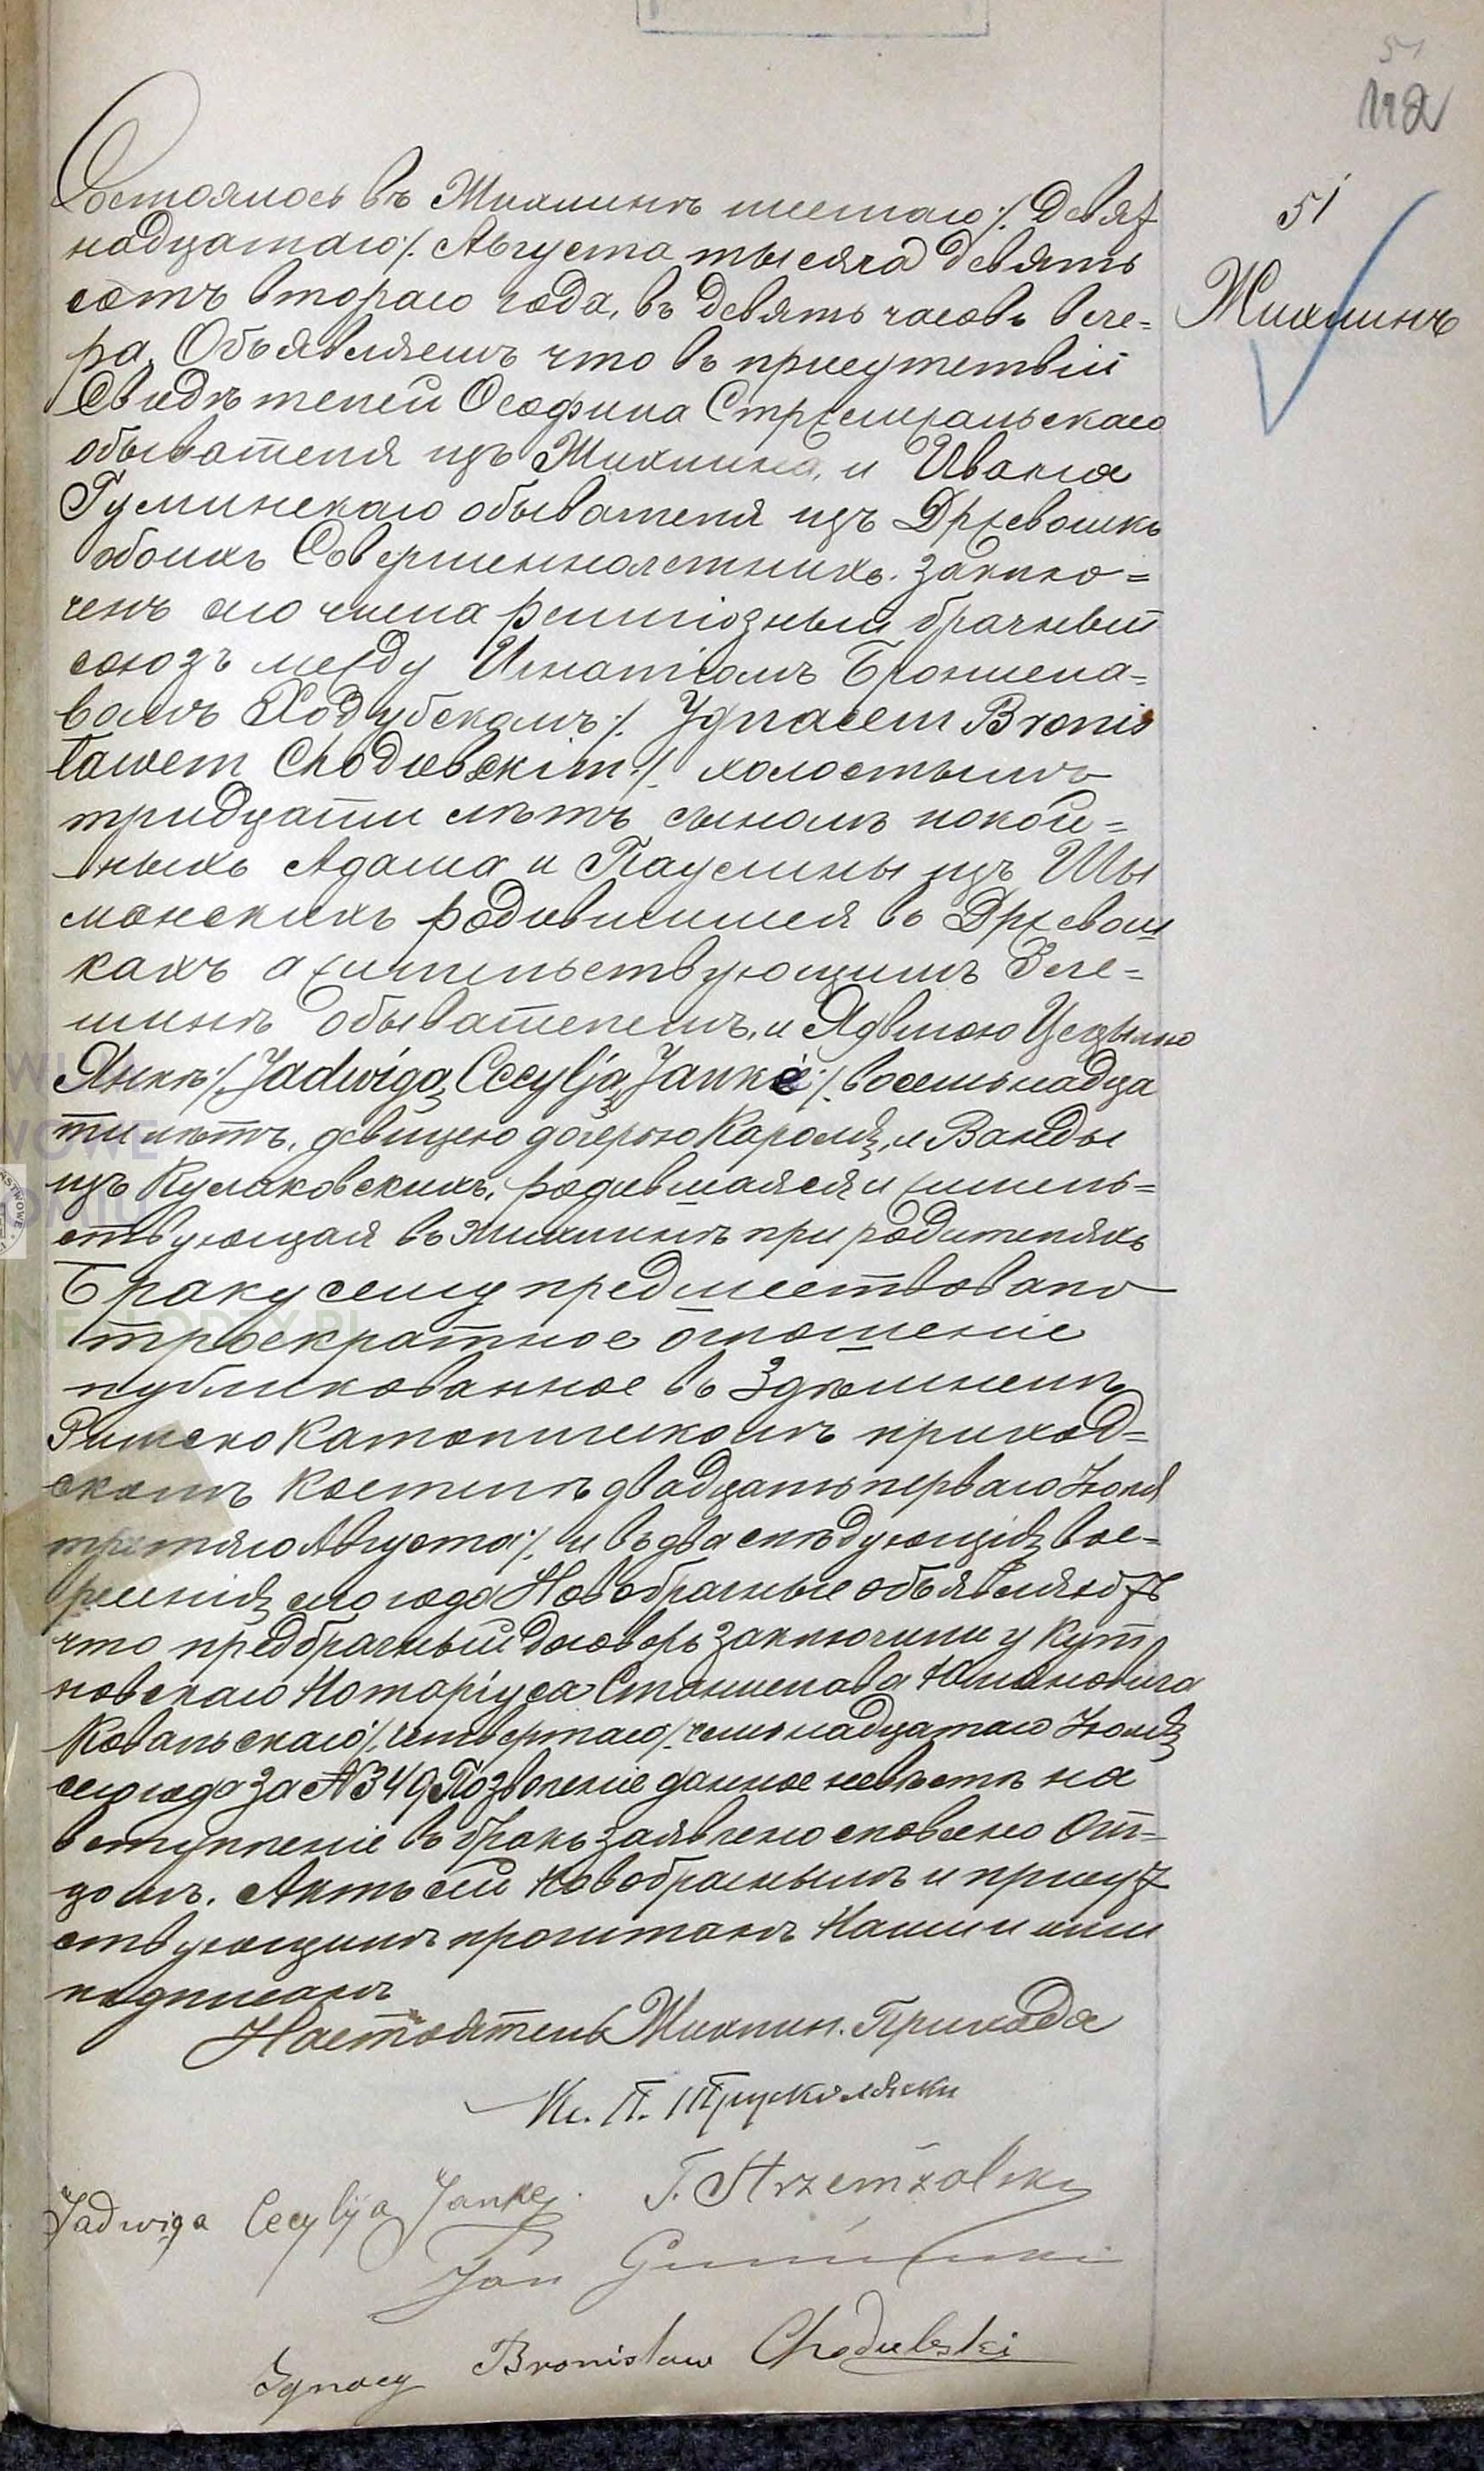 51
112
51
Жихлинъ
Состоялось въ Жихлинѣ шестаго /: девят
надцатаго :/ Августа тысяча девять
сотъ втораго года, въ девять часовъ вече=
ра. Объявляемъ что въ присутствіи
Свидѣтелей Ѳеофила Стржемжальскаго
обывателя изъ Жихлина, и Ивана
Гуминскаго обывателя изъ Држевошкъ
обоихъ Совершеннолетнихъ. Заклю=
ченъ сего числа религіозный брачный
союзъ между Игнатіомъ Бронисла=
вомъ Ходубскомъ /: Ygnacem Bronis
ławem Chodubskim :/ холостымъ
тридцати лѣтъ сыномъ покой=
ныхъ Адама и Паулины изъ Шы
монскихъ родившимся въ Држевош
кахъ а жительствующимъ
обывателемъ, и Ядвигою Цецылію
Янке /: Jadwigą Cecylją Janke :/ восемьнадца
ти лѣтъ, девицею дочерью Кароля, и Ванды
изъ Кулаковскихъ, родившаяся и житель=
ствующая въ Жихлинѣ при родителяхъ
Браку сему предшествовало
троекратное оглошеніе
публикованное въ Здѣшнемъ
Римско Католическомъ приход=
скомъ костелѣ двадцать перваго Іюля
третяго Августа :/ и въ два слѣдующія вос=
ресенія сего года Новобрачные объявляютъ
что предбрачный договоръ заключили у Кут
новскаго Нотаріуса Станислава Юліановича
Ковальскаго четвертаго /: семьнадцатаго Іюля
сего года за № 349 Позволеніе данное невѣстѣ на
вступленіе въ бракъ заявлено словесно От=
цомъ. Актъ сей Новобрачнымъ и присут
ствующимъ прочитанъ Нами и ими
подписанъ
Настоятель Жихлин. Прихода
Кс. П.
Jadwiga Cecylija Janke. T. Strzemżalski
Jan Gumiński
Ignacy Bronisław Chodubski